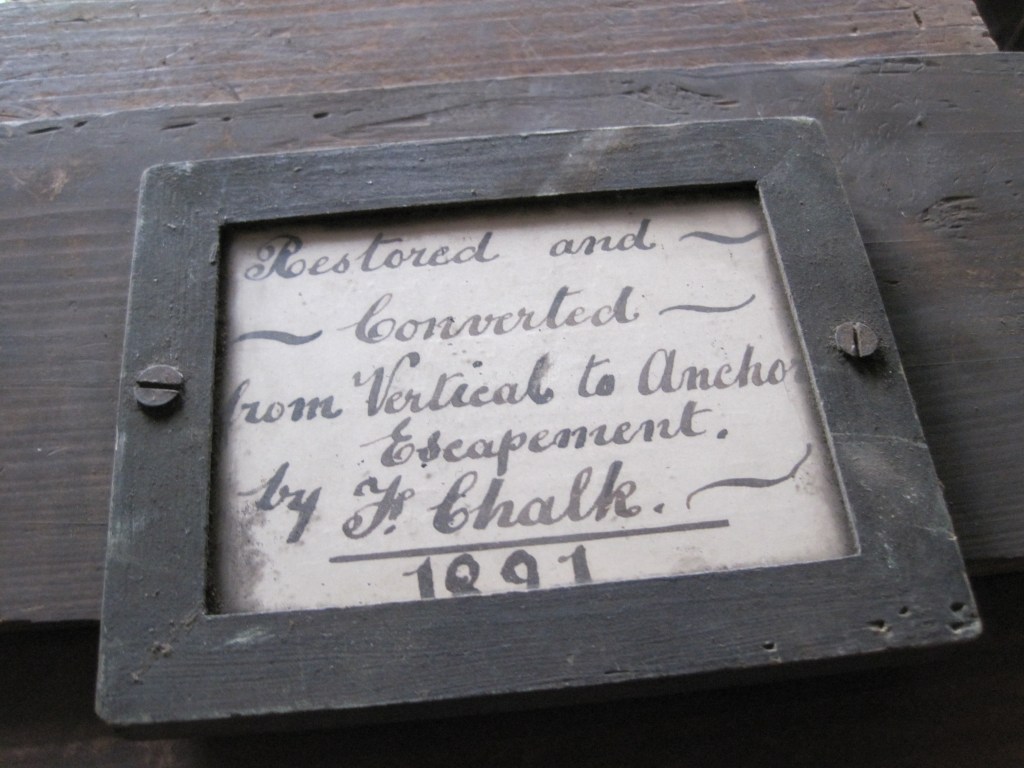 Restored and
Converted
from Vertical to Anchor
Escapement.
by F. Chalk.
1891